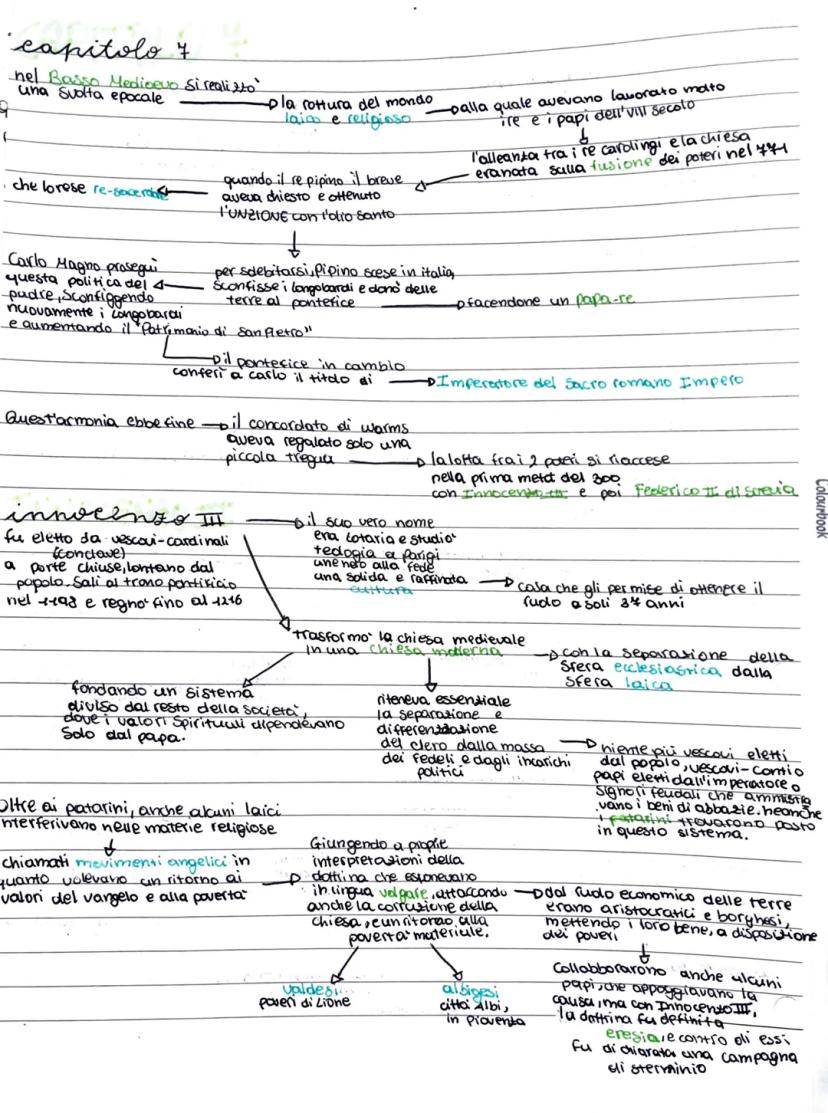 capitolo 7
nel Basso Medioevo si realizzò
una svolta epocale
la rottura del mondo
laico e religioso
alla quale avevano lavorato molto
i re e i papi dell'VIII secolo
l'alleanza tra i re carolingi e la chiesa
era nata sulla fusione dei poteri nel 771
quando il re pipino il breve
aveva chiesto e ottenuto
l'UNZIONE con l'olio santo
che lo rese re-sacerdote
per sdebitarsi, Pipino scese in italia,
sconfisse i longobardi e donò delle
terre al pontefice
facendone un papa-re
Carlo Magno proseguì
questa politica del
padre, sconfiggendo
nuovamente i Longobardi
e aumentando il "Patrimonio di San Pietro"
il pontefice in cambio
conferì a carlo il titolo di
Imperatore del Sacro romano Impero
Quest'armonia ebbe fine
il concordato di worms
aveva regalato solo una
piccola tregua
la lotta fra i 2 poteri si riaccese
nella prima metà del 300
con Innocenzo III e poi Federico II di svevia
innocenzo III
fu eletto da vescovi-cardinali
(conclave)
a porte chiuse, lontano dal
popolo. Salì al trono pontificio
nel 1198 e regnò fino al 1216
il suo vero nome
era Lotario e studiò
teologia a Parigi
unendo alla fede
una solida e raffinata
cultura
cosa che gli permise di ottenere il
ruolo a soli 37 anni
trasformò la chiesa medievale
in una chiesa moderna
con la separazione della
sfera ecclesiastica dalla
sfera laica
fondando un sistema
diviso dal resto della società,
dove i valori spirituali dipendevano
solo dal papa.
riteneva essenziale
la separazione e
differenziazione
del clero dalla massa
dei fedeli e dagli incarichi
politici
niente più vescovi eletti
dal popolo, vescovi-conti o
papi eletti dall'imperatore o
signori feudali che amministra
vano i beni di abbazie. neanche
i patarini trovarono posto
in questo sistema.
Oltre ai patarini, anche alcuni laici
interferivano nelle materie religiose
chiamati movimenti angelici in
quanto volevano un ritorno ai
valori del vangelo e alla povertà
Giungendo a proprie
interpretazioni della
dottrina che esponevano
in lingua volgare, attaccando
anche la corruzione della
chiesa, e un ritorno alla
povertà materiale.
dal ruolo economico delle terre
erano aristocratici e borghesi,
mettendo i loro bene, a disposizione
dei poveri
valdesi
poveri di Lione
albigesi
città Albi,
in Provenza
Collabborarono anche alcuni
papi, che appoggiavano la
causa, ma con Innocenzo III,
la dottrina fu definita
eresia, e contro di essi
fu dichiarata una campagna
di sterminio
Colourbook